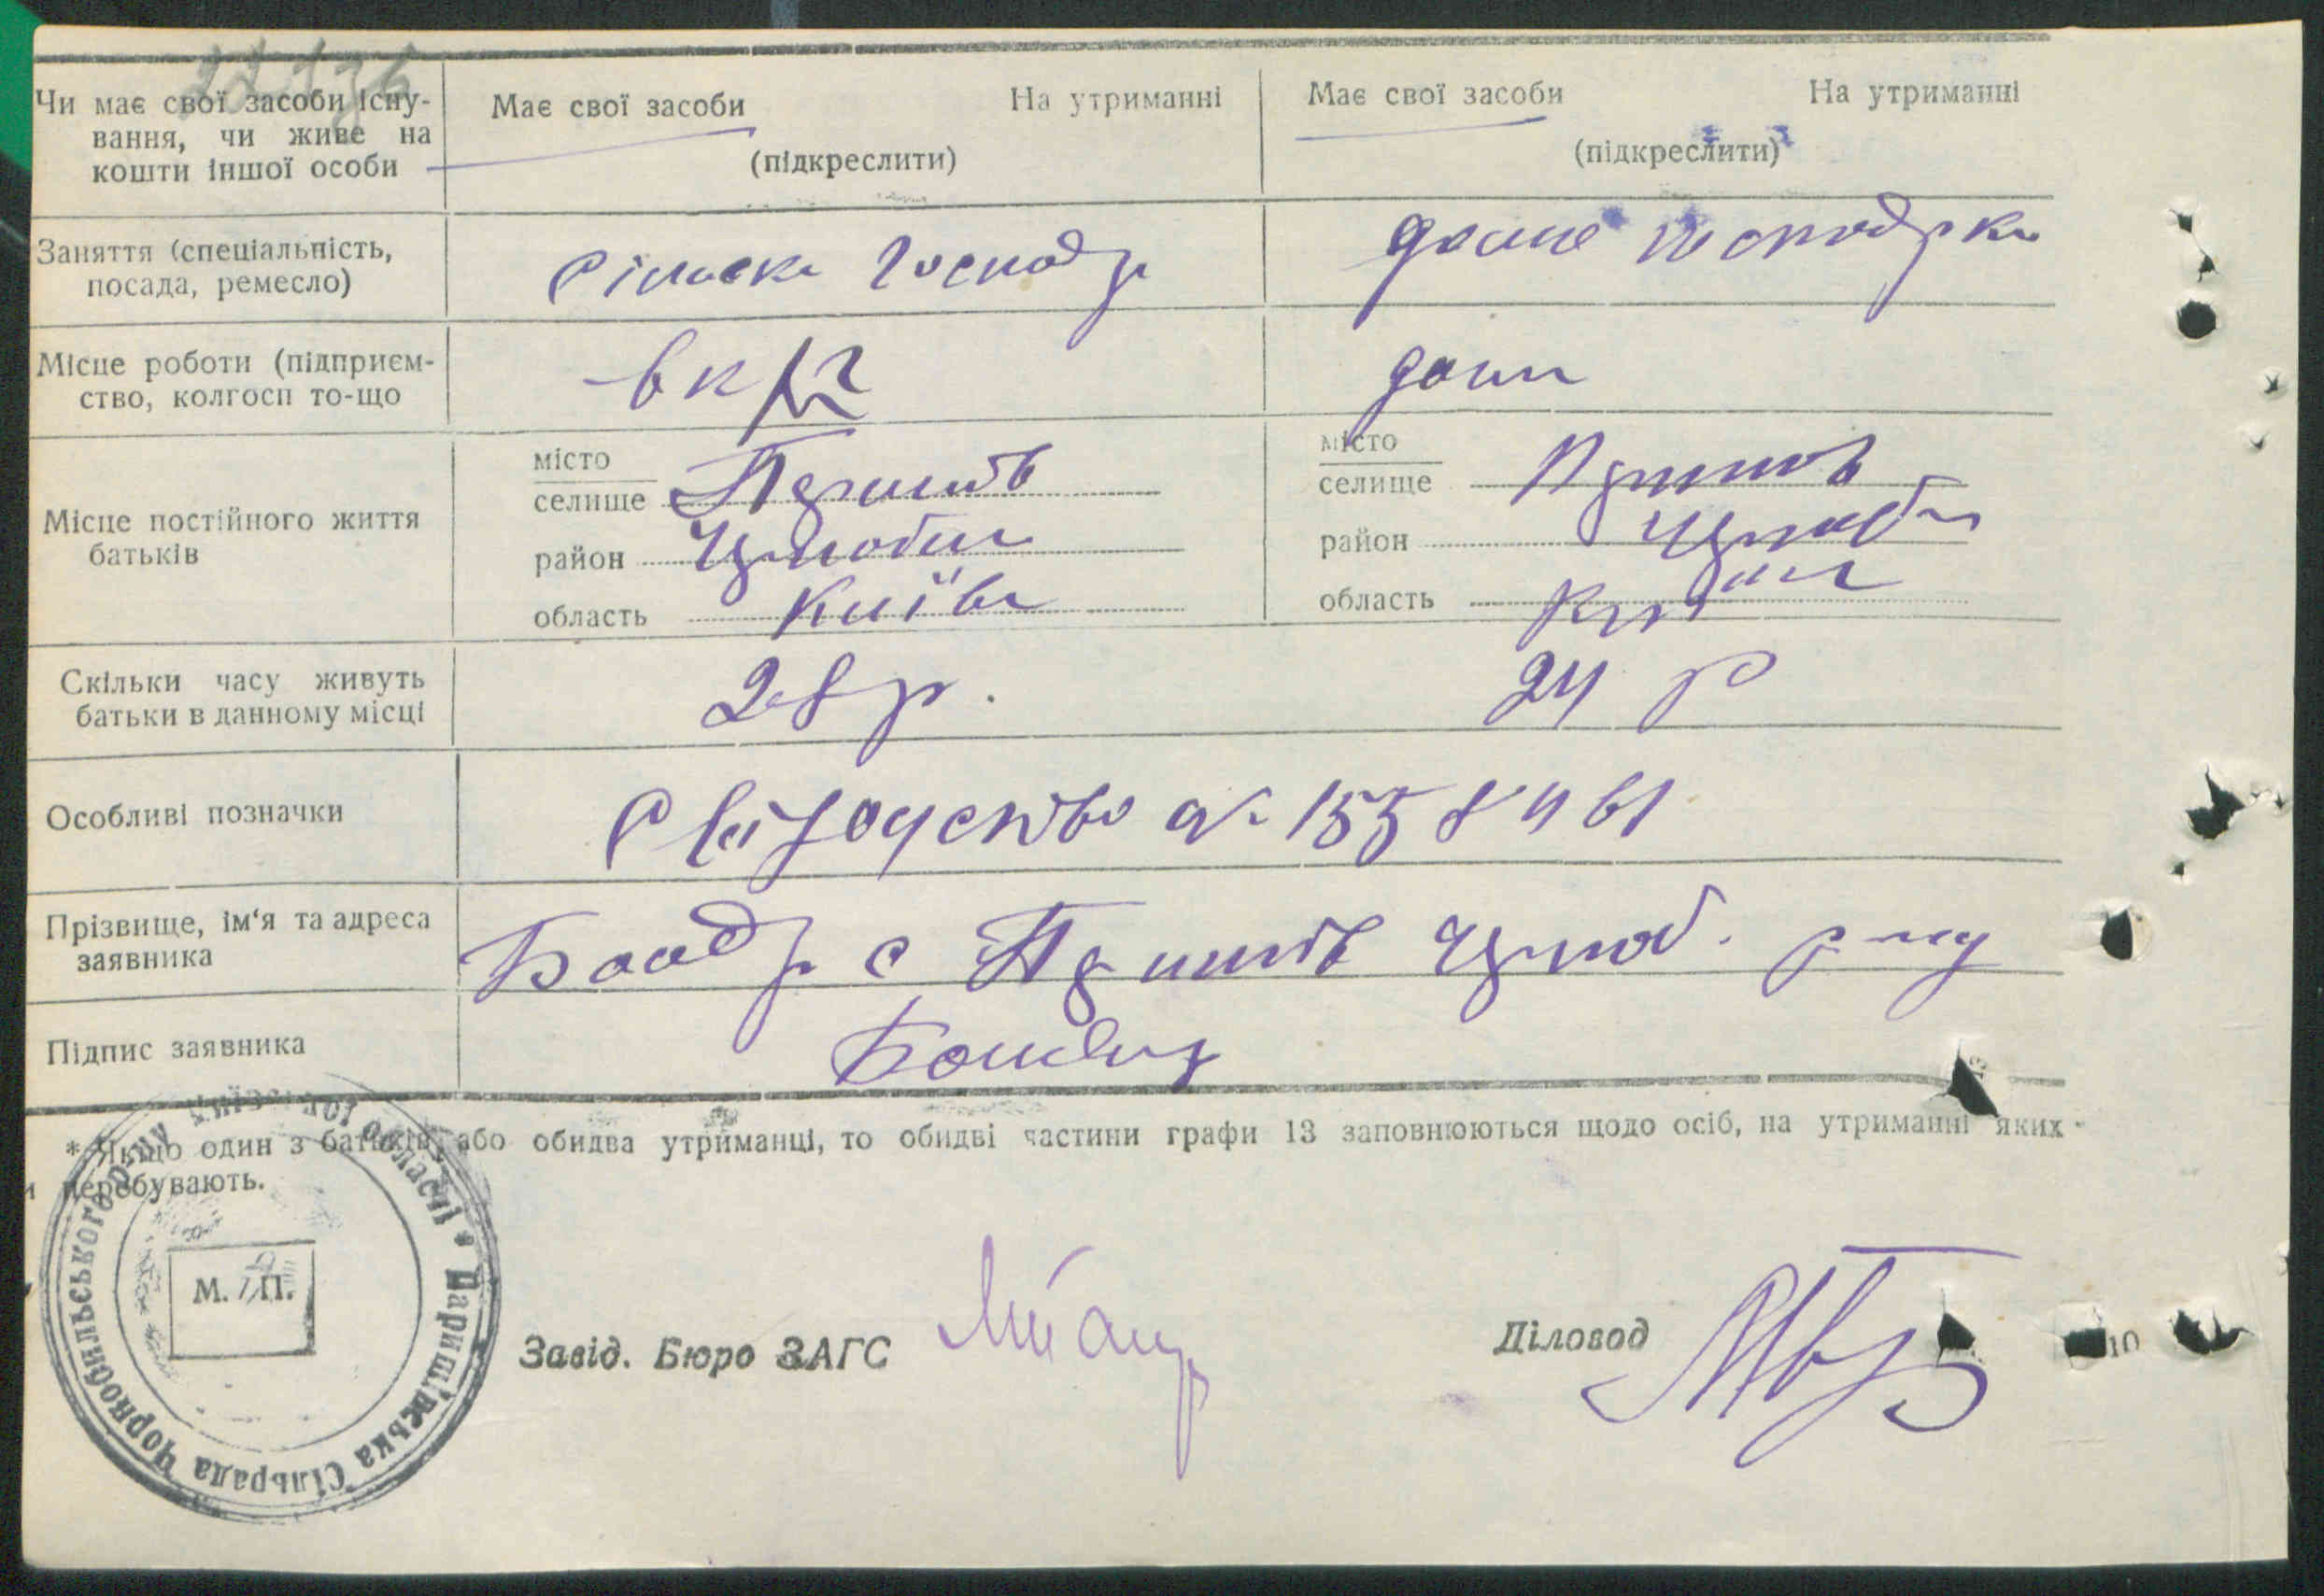 Чи має свої засоби існу-
вання, чи живе на
кошти іншої особи
Має свої засоби На утриманні
(підкреслити)
Має свої засоби На утриманні
(підкреслити)
Заняття (спеціальність,
посада, ремесло)
Сільськ господр
домаш господрка
Місце роботи (підприєм-
ство, колгосп то-що
в к/г
дома
Місце постійного життя
батьків
місто
селище Паришів
район Чорнобил
область Київ
місто
селище Паришів
район Чорноб
область
Скільки часу живуть
батьки в данному місці
28 р.
24 р
Особливі позначки
Свідоцтво №
Прізвище, ім'я та адреса
заявника
с Паришів Чорноб. р-ну
Підпис заявника
* Якщо один з батьків, або обидва утриманці, то обидві частини графи 13 заповнюються щодо осіб, на утриманні яких
перебувають.
Чорнобильського р-ну Київської області * Паришівська Сільрада
М. П.
Завід. Бюро ЗАГС
Діловод
10